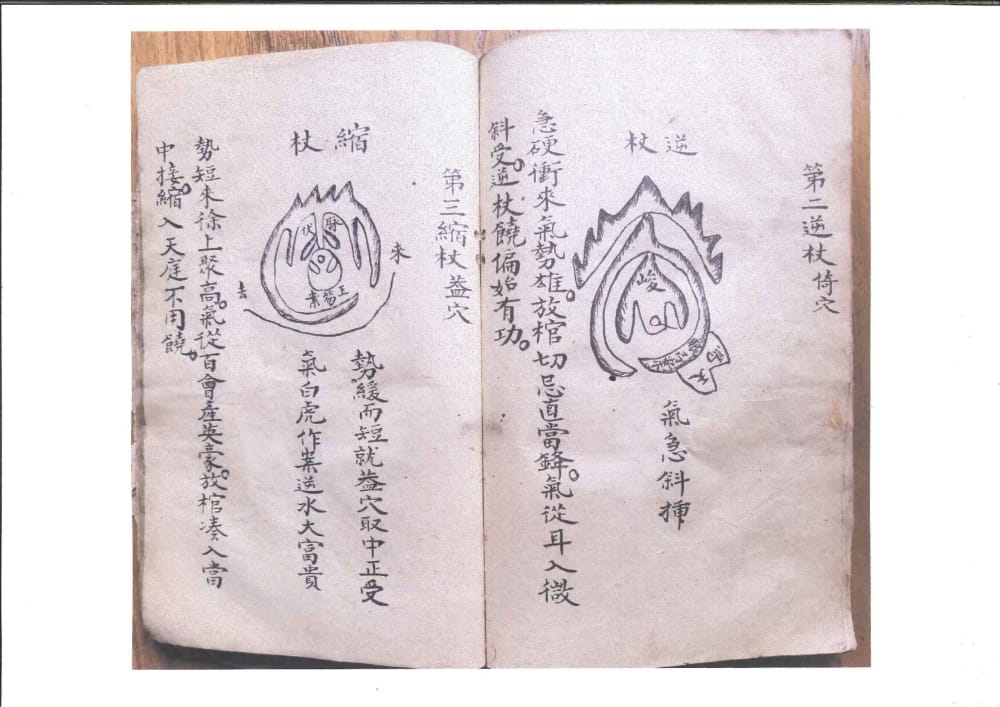 第二逆杖倚穴
逆杖
峻
氣急斜揷
急硬衝來氣勢雄。放棺切忌直當鋒。氣從耳入微
斜受。逆杖饒偏始有功。
第三縮杖葢穴
縮杖
來
伏
去
勢緩而短就葢穴取中正受
氣白虎作案逆水大富貴
勢短來徐上聚高。氣從百會產英豪。放棺凑入當
中接。縮入天庭不用饒。